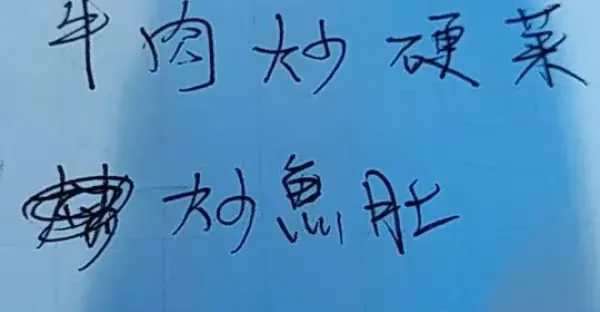 牛肉炒硬菜
炒魚肚